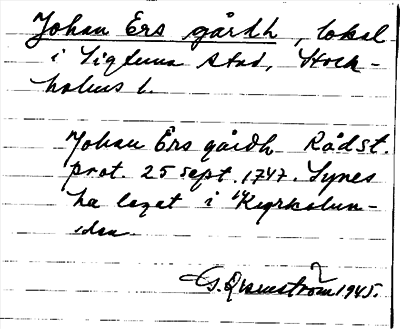 Johan Ers gårdh, lokal
i Sigtuna stad, Stock-
holms l.
Johan Ers gårdh Rådst.
prot. 25 sept. 1747. Synes
ha legat i Kyrkolun-
den.
G. 1945.